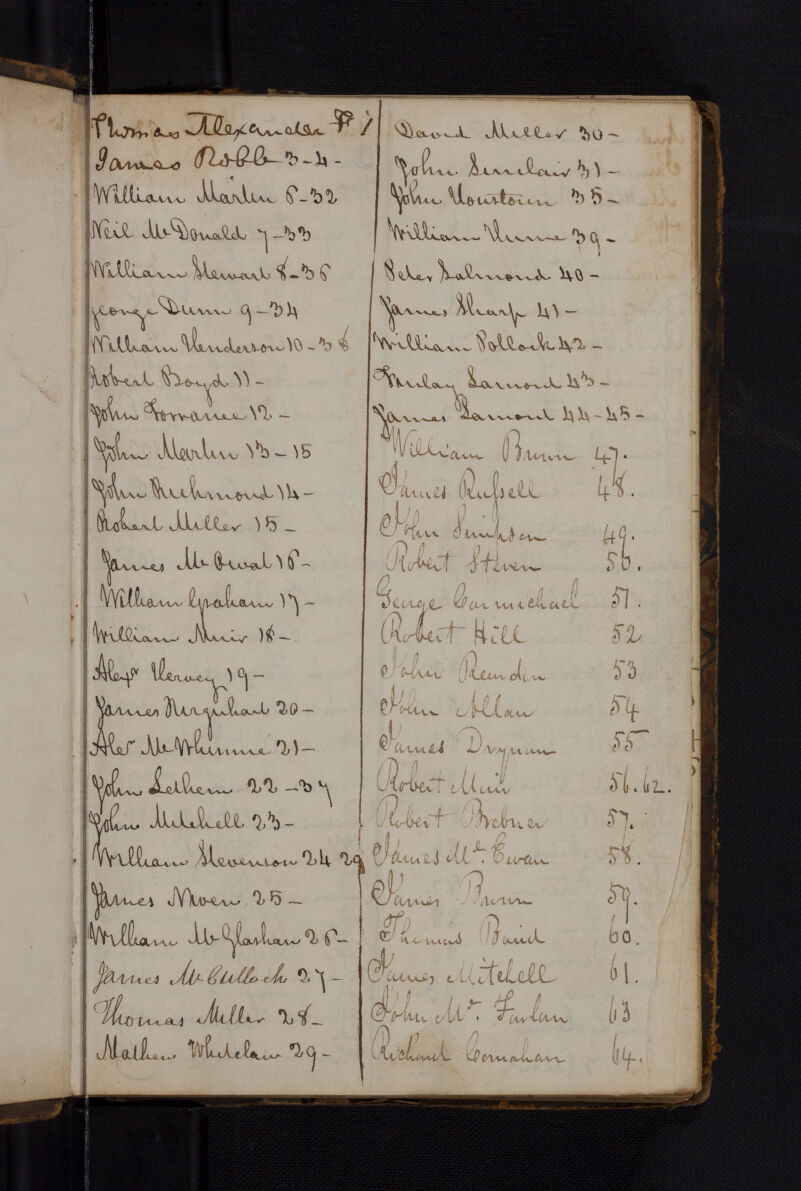 Thomas Alexander P 1
James Robb 3-4-
William Martin 6-32
Neil McDonald 7-33
William Stewart 8-36
George Dunn 9-34
William Henderson 10-38
Robert Boyd 11-
John Torrance 12-
John Martin 13-15
John Richmond 14-
Robert Miller 15-
James McEwal 16-
William Graham 17-
William Muir 18-
Alexr Hervey 19-
James Urquhart 20-
Alex McWhinnie 21-
John Lethem 22-37
John Mitchell 23-
William Stevenson 24 29
James Niven 25-
William McGlashan 26-
James McCulloch 27-
Thomas Miller 28-
Mathew Whitelaw 29-
David Miller 30-
John Sinclair 31-
John Houstoun 35-
William Hume 39-
Peter Salmond 40-
James Sharp 41-
William Pollock 42-
Finlay Lamond 43-
James Lamond 44-45-
William Brown 47.
James Russell 48.
John Simpson 49.
Robert Steven 50.
George Carmichael 51.
Robert Hill 52
John 53
John Allan 54
James Drynan 55
Robert Muir 56.62.
Robert Brebner 57.
James Mc.Ewan 58.
James Brown 59.
Thomas Baird 60.
James Mitchell 61.
John Mc.Farlan 63
Richard Carnahan 64.